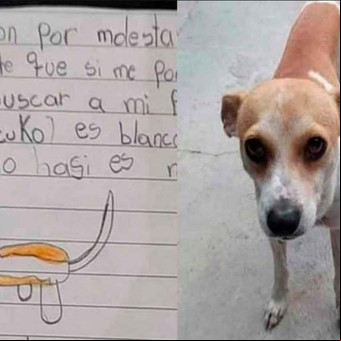 on por molesta
te que si me
buscar a mi
uKo) es blanco
o hasi es